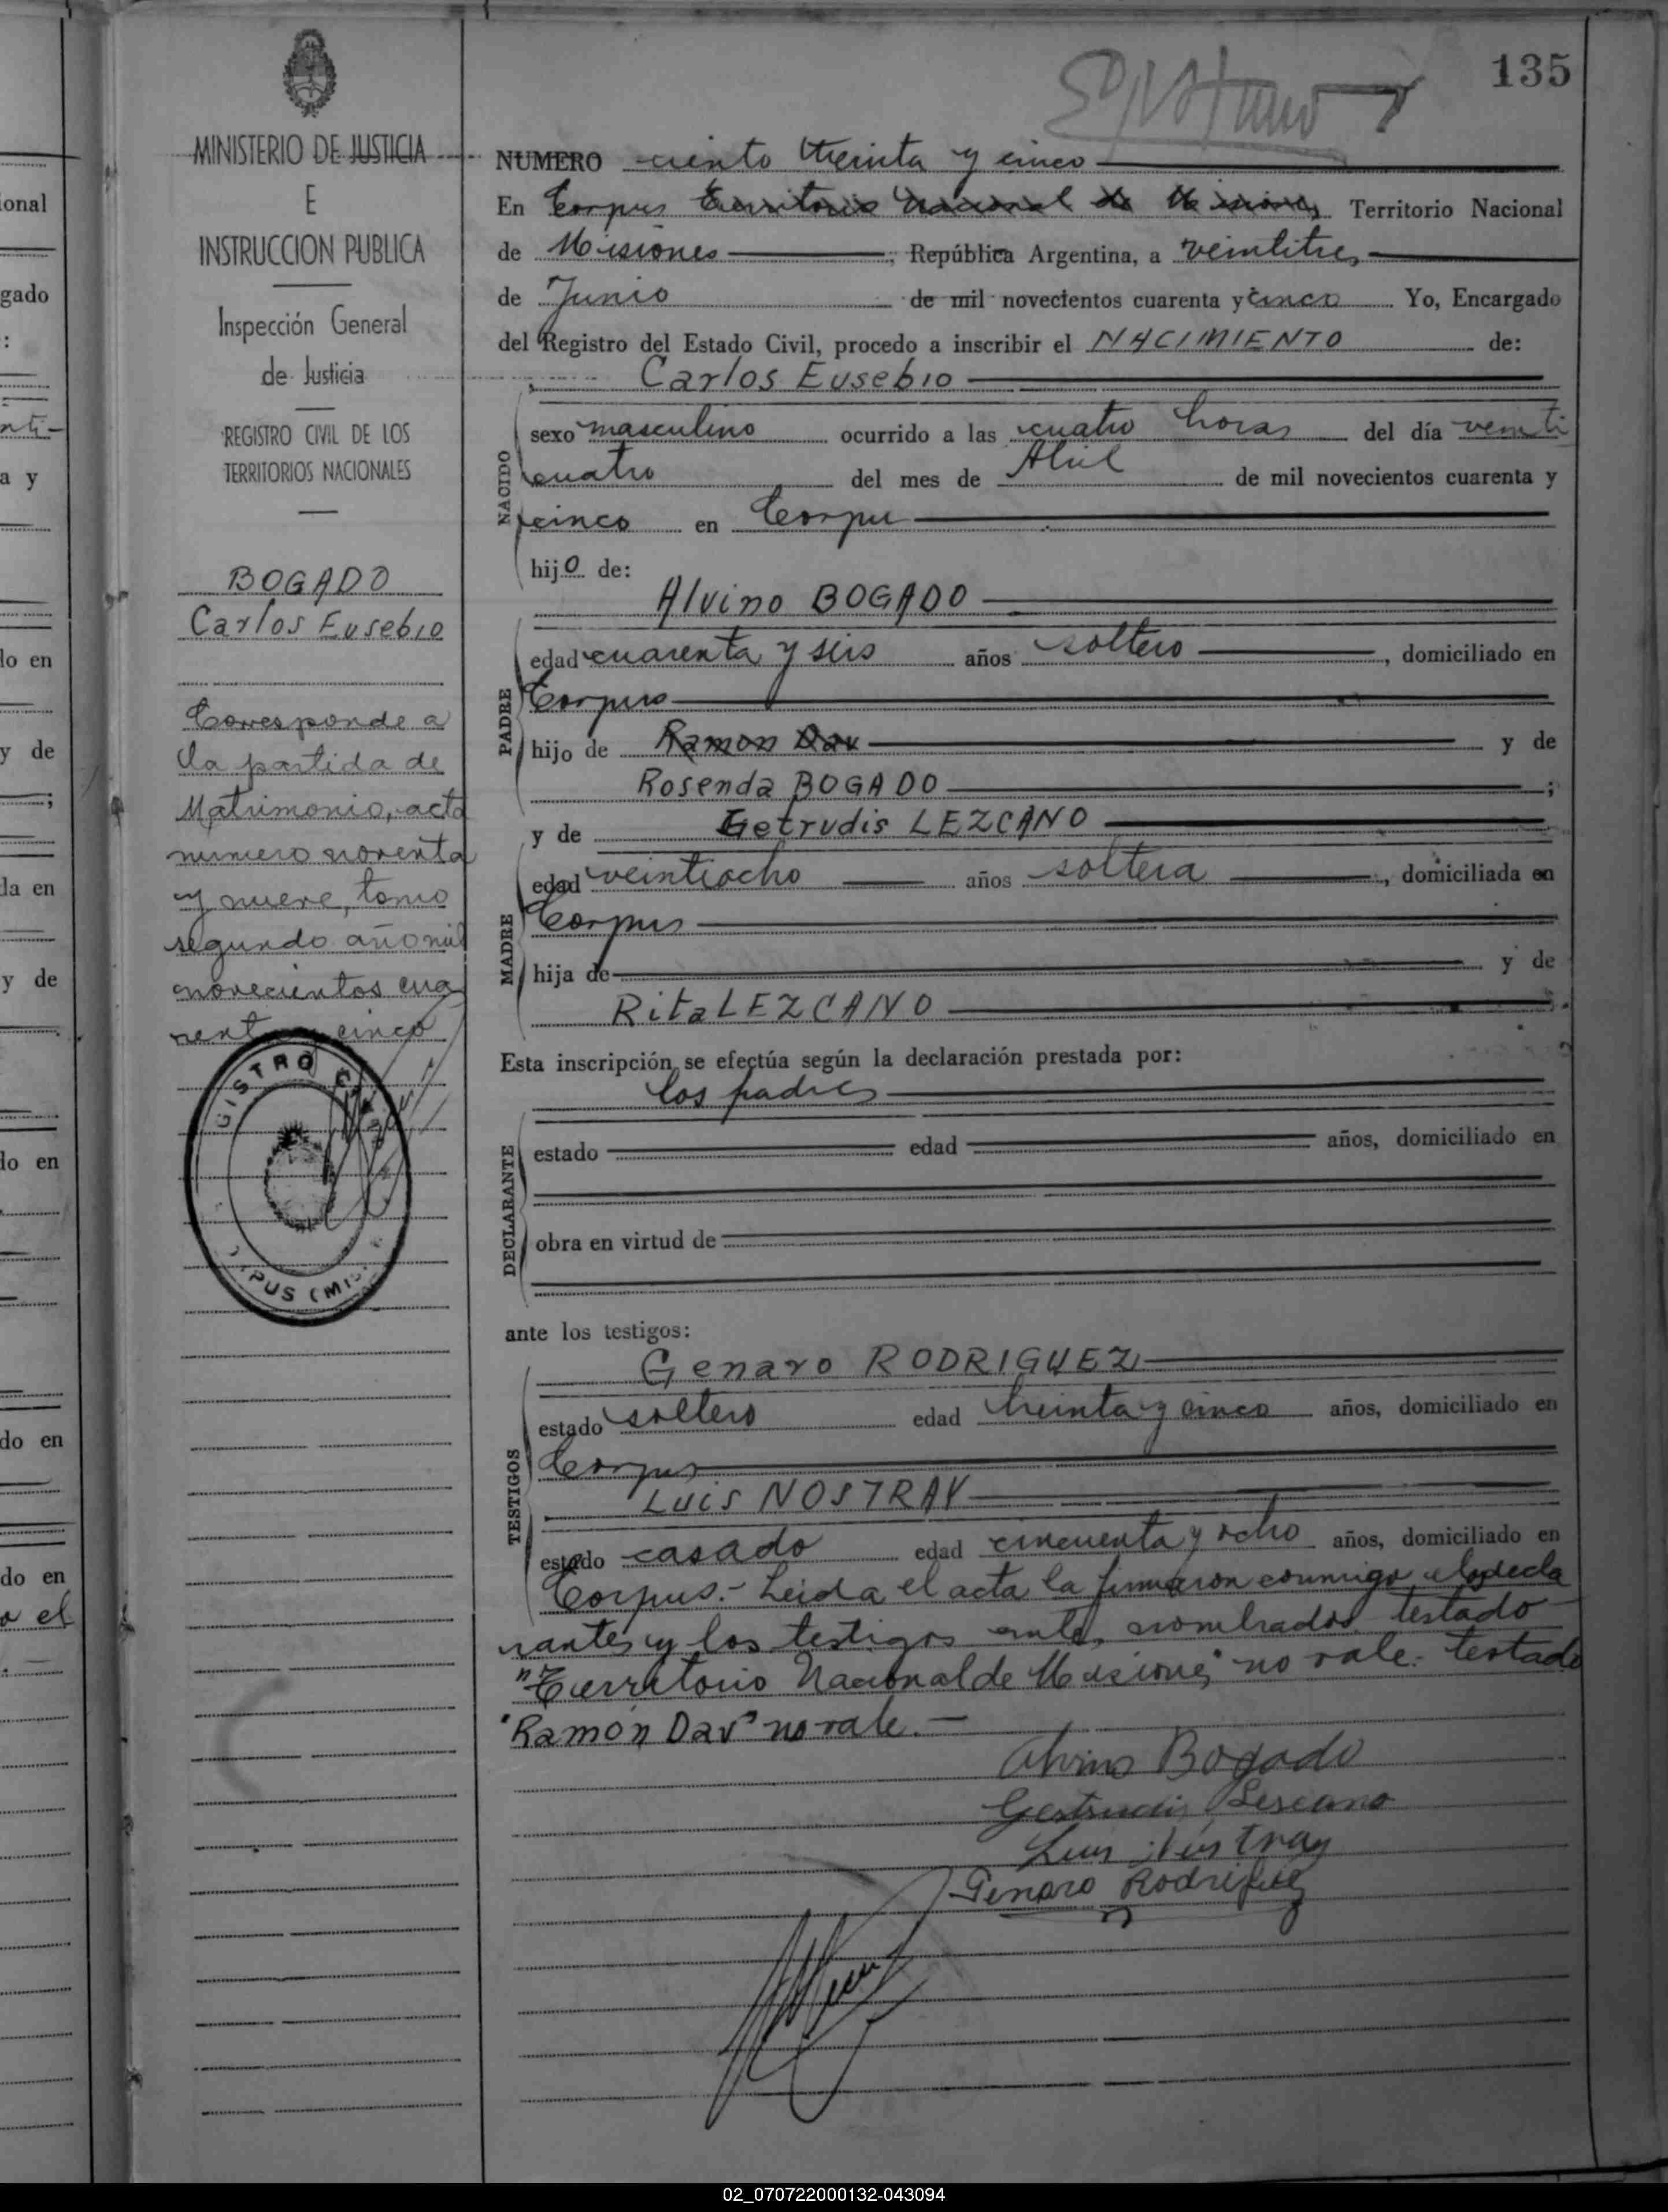 135
MINISTERIO DE JUSTICIA
E
INSTRUCCION PUBLICA
Inspección General
de Justicia
REGISTRO CIVIL DE LOS
TERRITORIOS NACIONALES
BOGADO
Carlos Eusebio
Corresponde a
la partida de
Matrimonio, acta
numero noventa
y nueve, tomo
segundo año mil
novecientos cua
renta y cinco
GISTRO C
PUS (MIS.
NUMERO ciento treinta y cinco
En Corpus Territorio Nacional de Misiones Territorio Nacional
de Misiones ; República Argentina, a veintitres
de Junio de mil novecientos cuarenta y cinco Yo, Encargado
del Registro del Estado Civil, procedo a inscribir el NACIMIENTO de:
Carlos Eusebio
NACIDO
sexo masculino ocurrido a las cuatro horas del día veinti
cuatro del mes de Abril de mil novecientos cuarenta y
cinco en Corpus
hijo de:
Alvino BOGADO
PADRE
edad cuarenta y seis años soltero , domiciliado en
Corpus
hijo de Ramon Dav y de
Rosenda BOGADO ;
y de Getrudis LEZCANO
MADRE
edad veintiocho años soltera , domiciliada en
Corpus
hija de y de
Rita LEZCANO
Esta inscripción se efectúa según la declaración prestada por:
los padres
DECLARANTE
estado edad años, domiciliado en
obra en virtud de
ante los testigos:
Genaro RODRIGUEZ
TESTIGOS
estado soltero edad treinta y cinco años, domiciliado en
Corpus
Luis NOSTRAY
estado casado edad cincuenta y ocho años, domiciliado en
Corpus.- Leida el acta la firmaron conmigo los decla
rantes y los testigos antes nombrados testado
"Territorio Nacional de Misiones" no vale. testado
"Ramon Dav" no vale.—
Alvino Bogado
Gertrudis Lescano
Luis Nostray
Genaro Rodriguez
ional
gado
:
nti-
a y
lo en
y de
;
la en
y de
lo en
do en
do en
o el
02_070722000132-043094